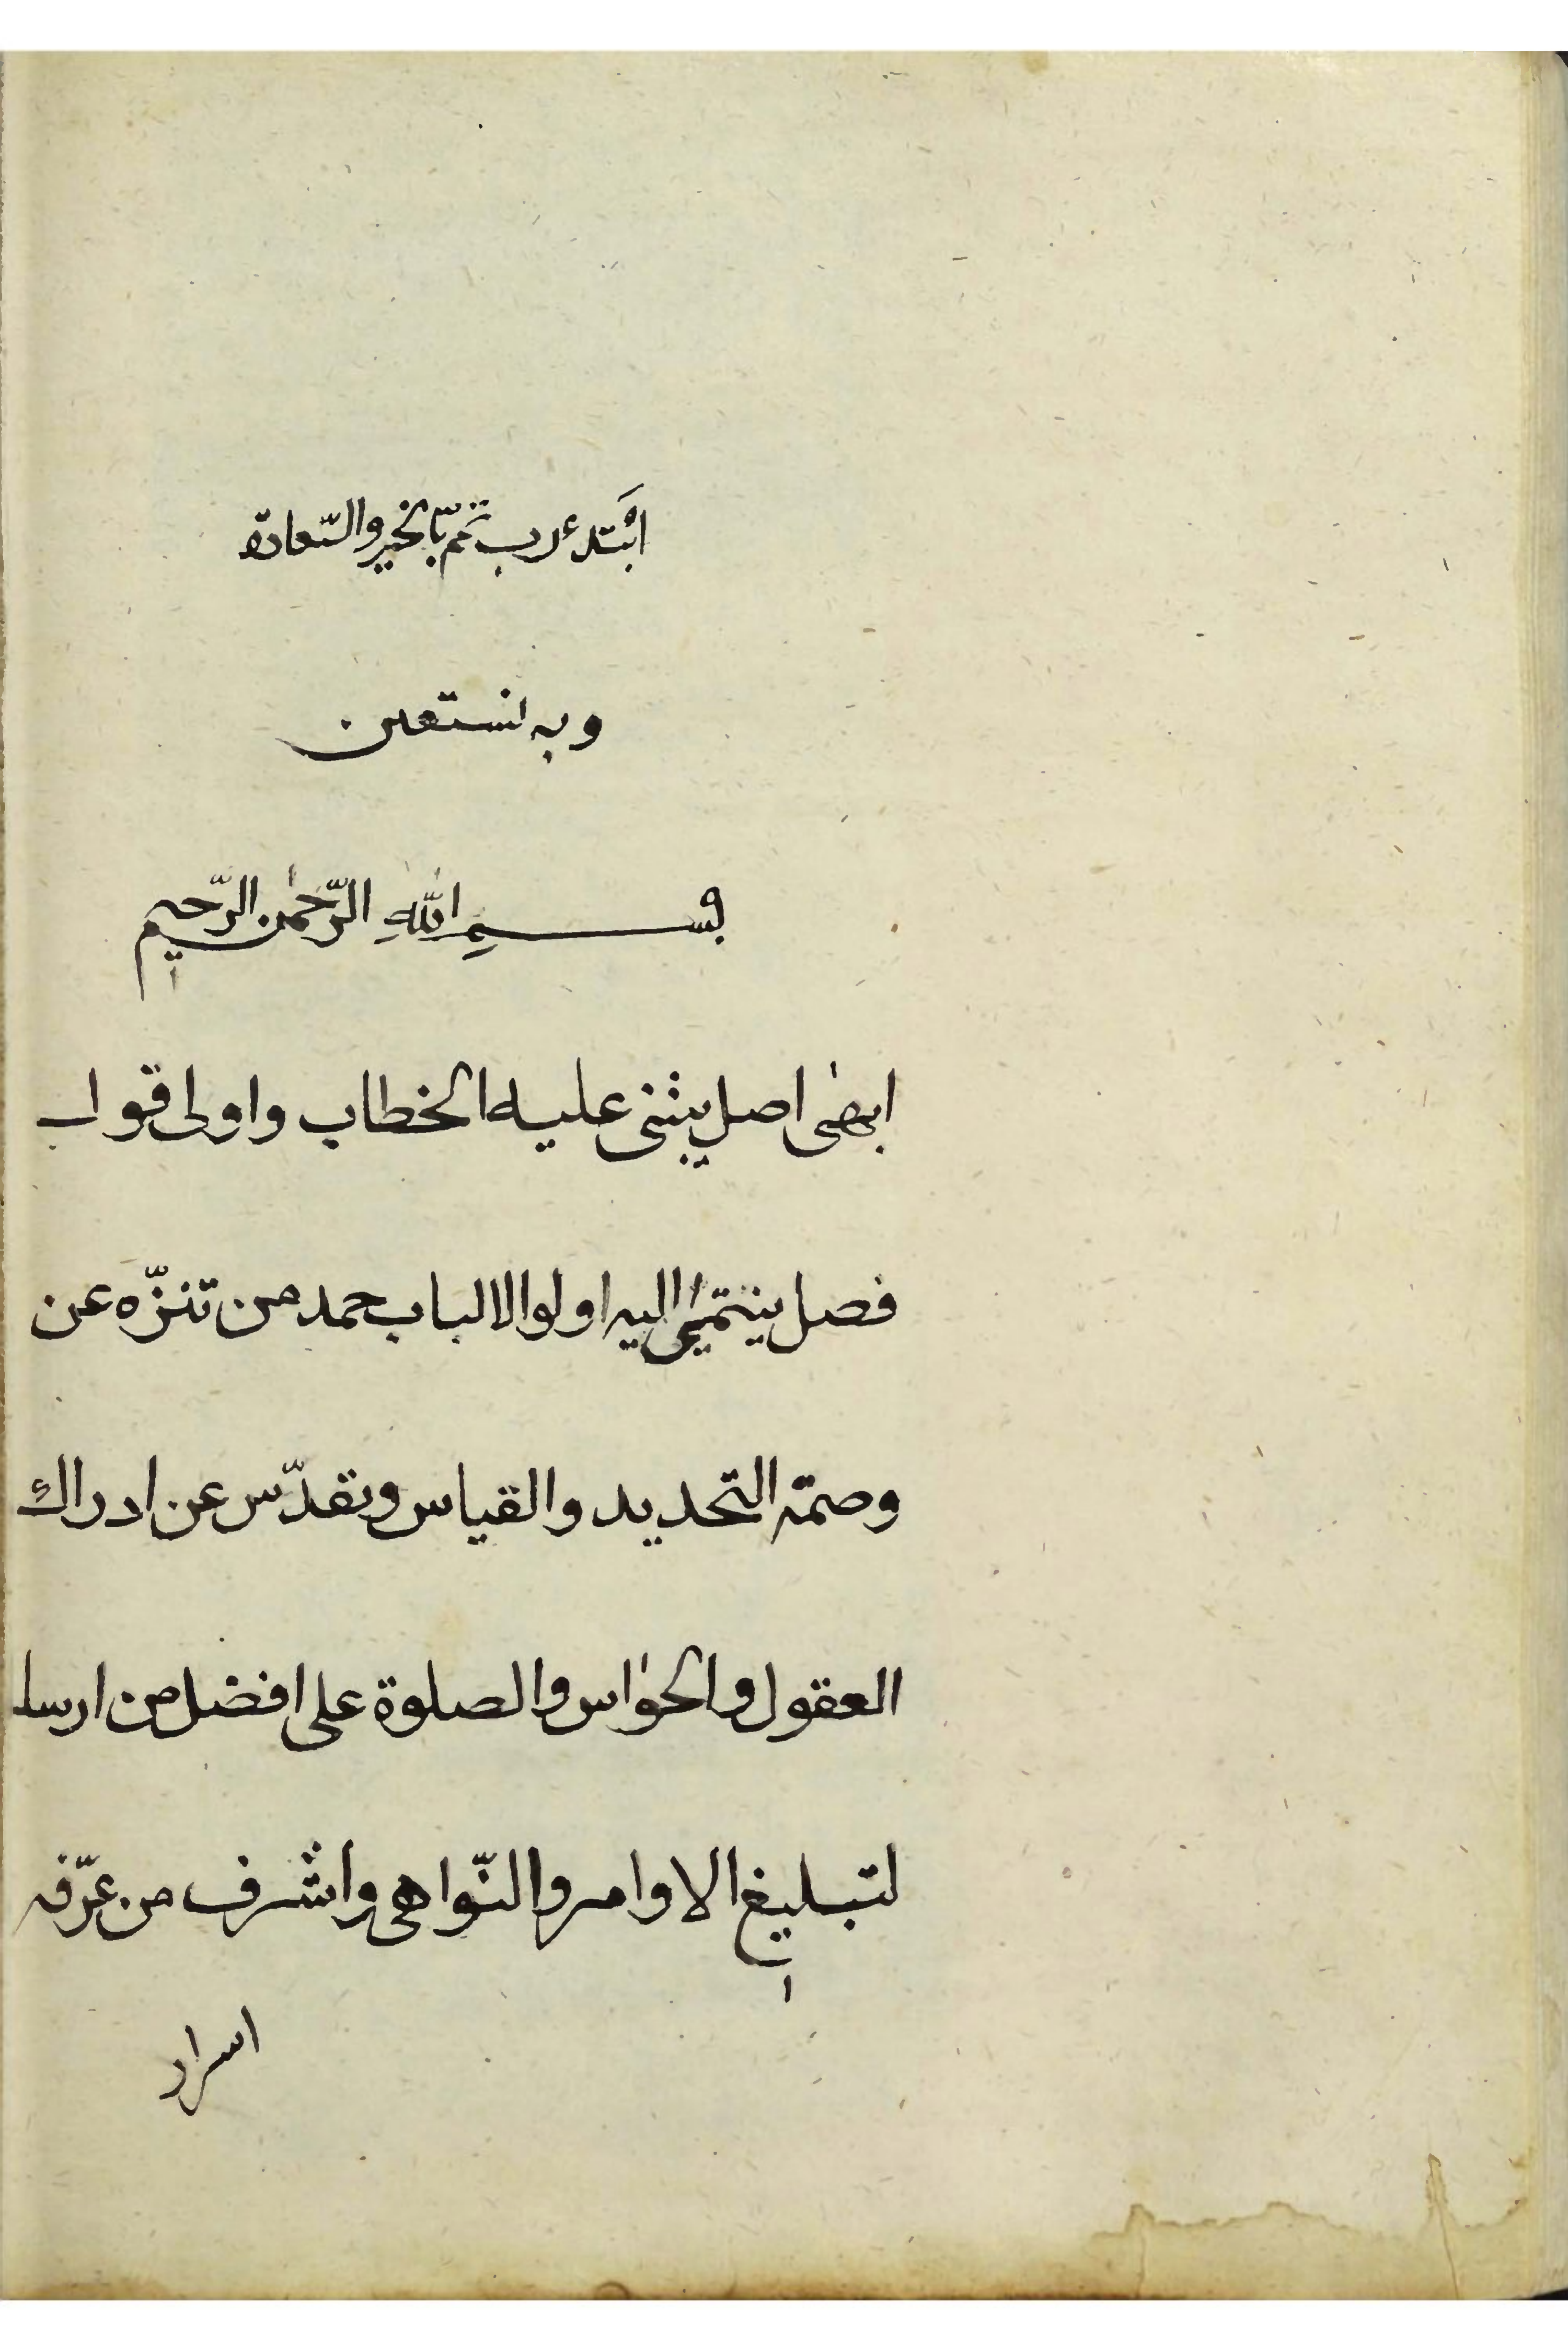 ابتدء رب تمم بالخير والسّعادة
وبه نستعين
بسم اللهِ الرّحمٰن الرّحيم
ابهىٰ اصل يبثنى عليه الخطاب واولى قول
فصل ينتمى اليه اولوا الالباب حمد من تنزّه عن
وصمة التحديد والقياس وتقدّس عن ادراك
العقول والحواس والصلوة على افضل من ارسل
لتبليغ الاوامر والنّواهى واشرف من عرّفه
اسرار